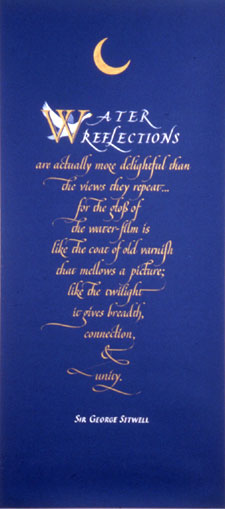 WATER
REFLECTIONS
are actually more delightful than
the views they repeat...
for the gloss of
the water-film is
like the coat of old varnish
that mellows a picture;
like the twilight
it gives breadth,
connection,
&
unity.
SIR GEORGE SITWELL